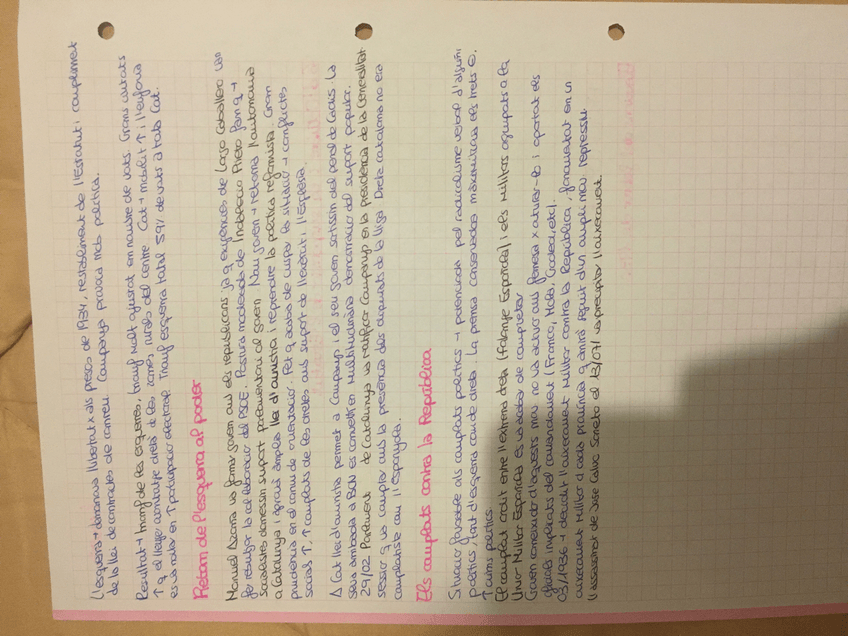 L'esquerra → demanava llibertat x als presos de 1934, restabliment de l'Estatut i compliment
de la llei de contractes de conreu. Companys provava més polèmica.
Resultat → triomf de les esquerres, triomf molt ajustat en nombre de vots. Grans ciutats
↑ q el lleig contrària dreta de les zones rurals del centre. Cat → mobilit ↑ i l'eufòria
es va notar en ↑ participació electoral. Triomf esquerra total 59% de vots a tota Cat.
Retorn de l'esquerra al poder
Manuel Azaña va formar govern amb els republicans ja q exigències de Largo Caballero van
fer rebutjar la col·laboració del PSOE. Postura moderada de Indalecio Prieto fan q →
socialistes donessin suport parlamentari al govern. Nou govern → retorna l'autonomia
a Catalunya i aprova àmplia llei d'amnistia i reprendre la política reformista. Gran
prudència en el canvi de orientació. Pot q acaba de crispar la situació → conflictes
socials ↑, ↑ complots de les dretes amb suport de l'exèrcit i l'Església.
A Cat llei d'amnistia permet a Companys i el seu govern sortissin del penal de Cadis. La
seva arribada a BCN es converteix en multitudinària demostració del suport popular.
29/02 Parlament de Catalunya va ratificar Companys en la presidència de la Generalitat
sessió q va comptar amb la presència dels diputats de la Lliga. Dreta catalana no era
complotista com l'espanyola.
Els complots contra la República
Situació favorable als complots polítics → potenciada pel radicalisme verbal d'alguns
polítics, tant d'esquerra com de dreta. La premsa conservadora magnificava els trets ⊖.
↑ crims polítics.
El complot crait entre l'extrema dreta (Falange Española) i els militars agrupats a la
Unión Militar Española es va deixar de complotar.
Govern coneixedor d'aquests mov. no va actuar amb fermesa x aturar-lo i apartat els
oficials implicats del comandament (Franco, Mola, Goded, etc).
03/1936 → decidit l'aixecament militar contra la República, fonamentat en un
aixecament militar a cada província q aniria seguit d'un ampli mov. repressiu.
L'assassinat de José Calvo Sotelo el 13/07/ va precipitar l'aixecament.